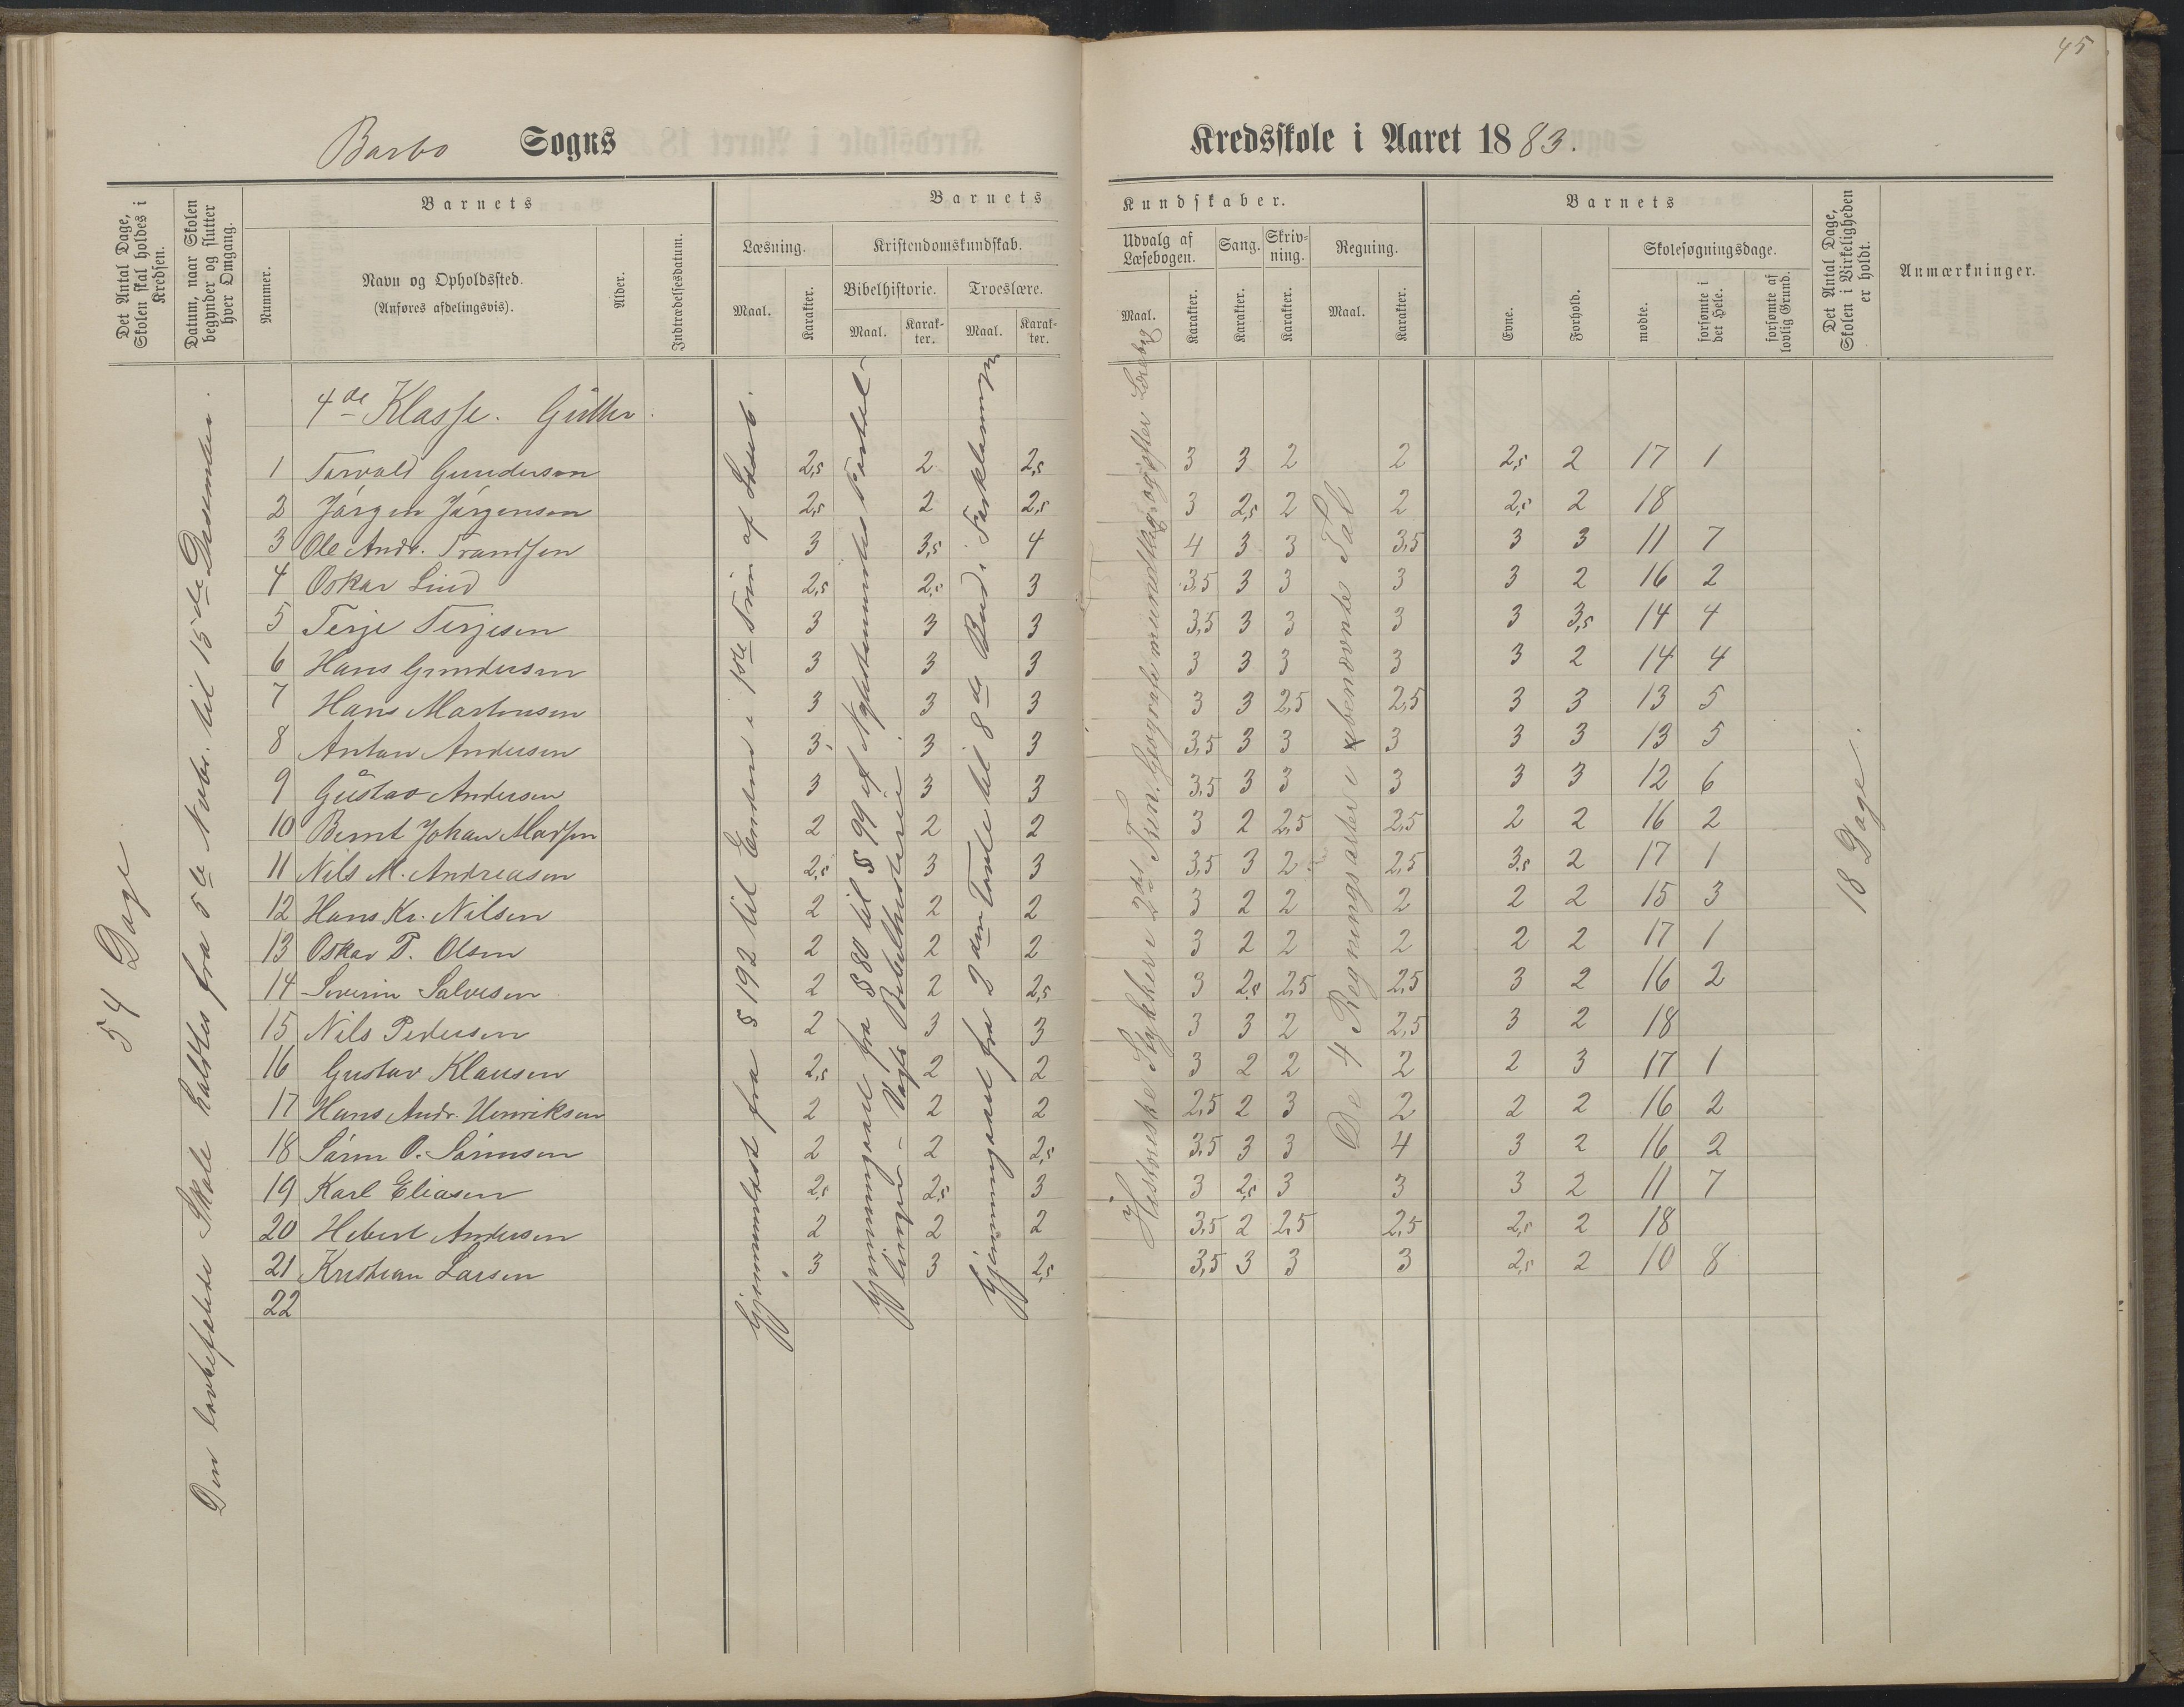 45
Barbo Sogns Kredsskole i Aaret 1883.
Det Antal Dage, Skolen skal holdes i Kredsen.
Datum, naar Skolen begynder og slutter hver Omgang.
Barnets
Nummer.
Navn og Opholdssted.
(Anføres afdelingsvis).
Alder.
Indtrædelsesdatum.
Barnets Kundskaber.
Læsning.
Maal.
Karakter.
Kristendomskundskab.
Bibelhistorie.
Maal.
Karakter.
Troeslære.
Maal.
Karakter.
Udvalg af Læsebogen.
Maal.
Karakter.
Sang.
Karakter.
Skrivning.
Karakter.
Regning.
Maal.
Karakter.
Barnets
Evne.
Forhold.
Skolesøgningsdage.
mødte.
forsømte i det Hele.
forsømte af lovlig Grund.
Det Antal Dage, Skolen i Virkeligheden er holdt.
Anmærkninger.
54 Dage
Den lovbefalede Skole holdtes fra 5te Novbr. til 15de Desember.
4de Klasse. Gutter.
Gjennemlæst fra § 192 til Enden i 1ste Trin af Læseb.
Gjennemgaaet fra § 80 til § 99 af
Vogts Bibelhistorie.
Gjennemgaaet fra til 8de Bud i Forklaringen
Historiske Stykker i 2det Trin. Geografi mundtlig og efter Læsebog
De 4 Regningsarter i ubenævnte Tal
18 Dage.
1 Torvald Gundersen 2,5 2 2,5 3 3 2 2 2,5 2 17 1
2 Jörgen Jörgensen 2,5 2 2,5 3 2,5 2 2 2,5 2 18
3 Ole Andr. Trandsen 3 3,5 4 4 3 3 3,5 3 3 11 7
4 Oskar Lind 2,5 2,5 3 3,5 3 3 3 3 2 16 2
5 Terje Terjesen 3 3 3 3,5 3 3 3 3 3,5 14 4
6 Hans Gundersen 3 3 3 3 3 3 3 3 2 14 4
7 Hans Martensen 3 3 3 3 3 2,5 2,5 3 3 13 5
8 Anton Andersen 3 3 3 3,5 3 3 3 3 3 13 5
9 Gustav Andersen 3 3 3 3,5 3 3 3 3 3 12 6
10 Bernt Johan Madsen 2 2 2 3 2 2,5 2,5 2 2 16 2
11 Nils M. Andreasen 2,5 3 3 3,5 3 2 2,5 3,5 2 17 1
12 Hans Kr. Nilsen 2 2 2 3 2 2 2 2 2 15 3
13 Oskar P. Olsen 2 2 2 3 2 2 2 2 2 17 1
14 Severin Salvesen 2 2 2,5 3 2,5 2,5 2,5 3 2 16 2
15 Nils Pedersen 2 3 3 3 3 2 2,5 3 2 18
16 Gustav Klausen 2,5 2 2 3 2 2 2 2 3 17 1
17 Hans Andr. Henriksen 2 2 2 2,5 2 3 2 2 2 16 2
18 Sören O. Sörensen 2 2 2,5 3,5 3 3 4 3 2 16 2
19 Karl Eliasen 2,5 2,5 3 3 2,5 3 3 3 2 11 7
20 Hebert Andersen 2 2 2 3,5 2 2,5 2,5 2,5 2 18
21 Kristian Larsen 3 3 2,5 3,5 3 3 3 2,5 2 10 8
22